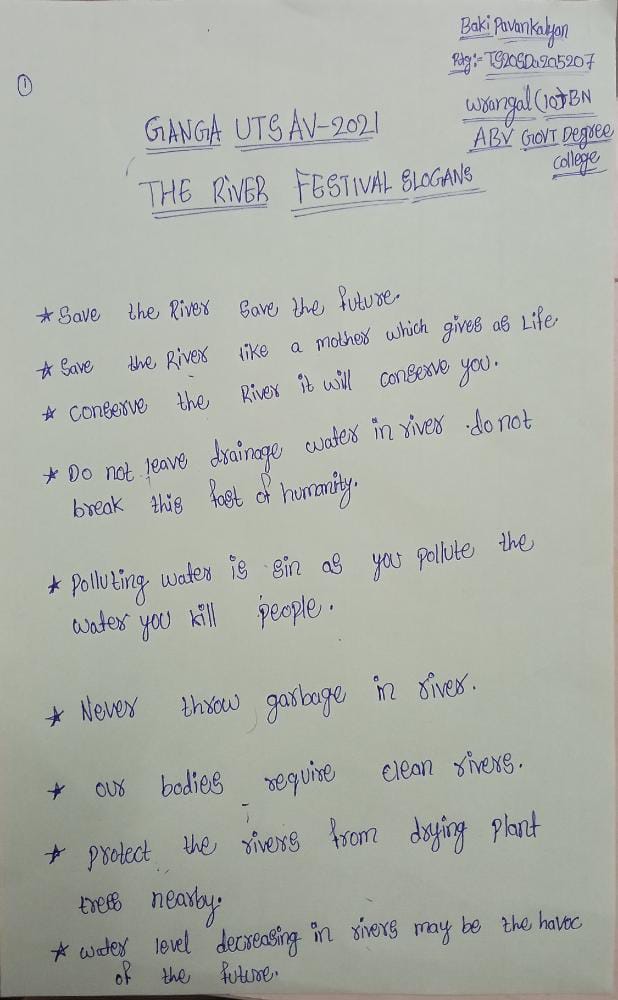 Baki Pavankalyan
Rdg:- TS20SDA205207
①
Wrangal (10) TBN
GANGA UTSAV-2021
ABV GOVT Degree
college
THE RIVER FESTIVAL SLOGANS
★ Save the River Save the future.
★ Save the River like a mother which gives as Life.
★ conserve the River it will conserve you.
★ Do not leave drainage water in river .do not
break this fast of humanity.
★ Polluting water is sin as you pollute the
water you kill people.
★ Never throw garbage in river.
★ our bodies require clean rivers.
★ protect the rivers from drying plant
trees nearby.
★ water level decreasing in rivers may be the havoc
of the future.